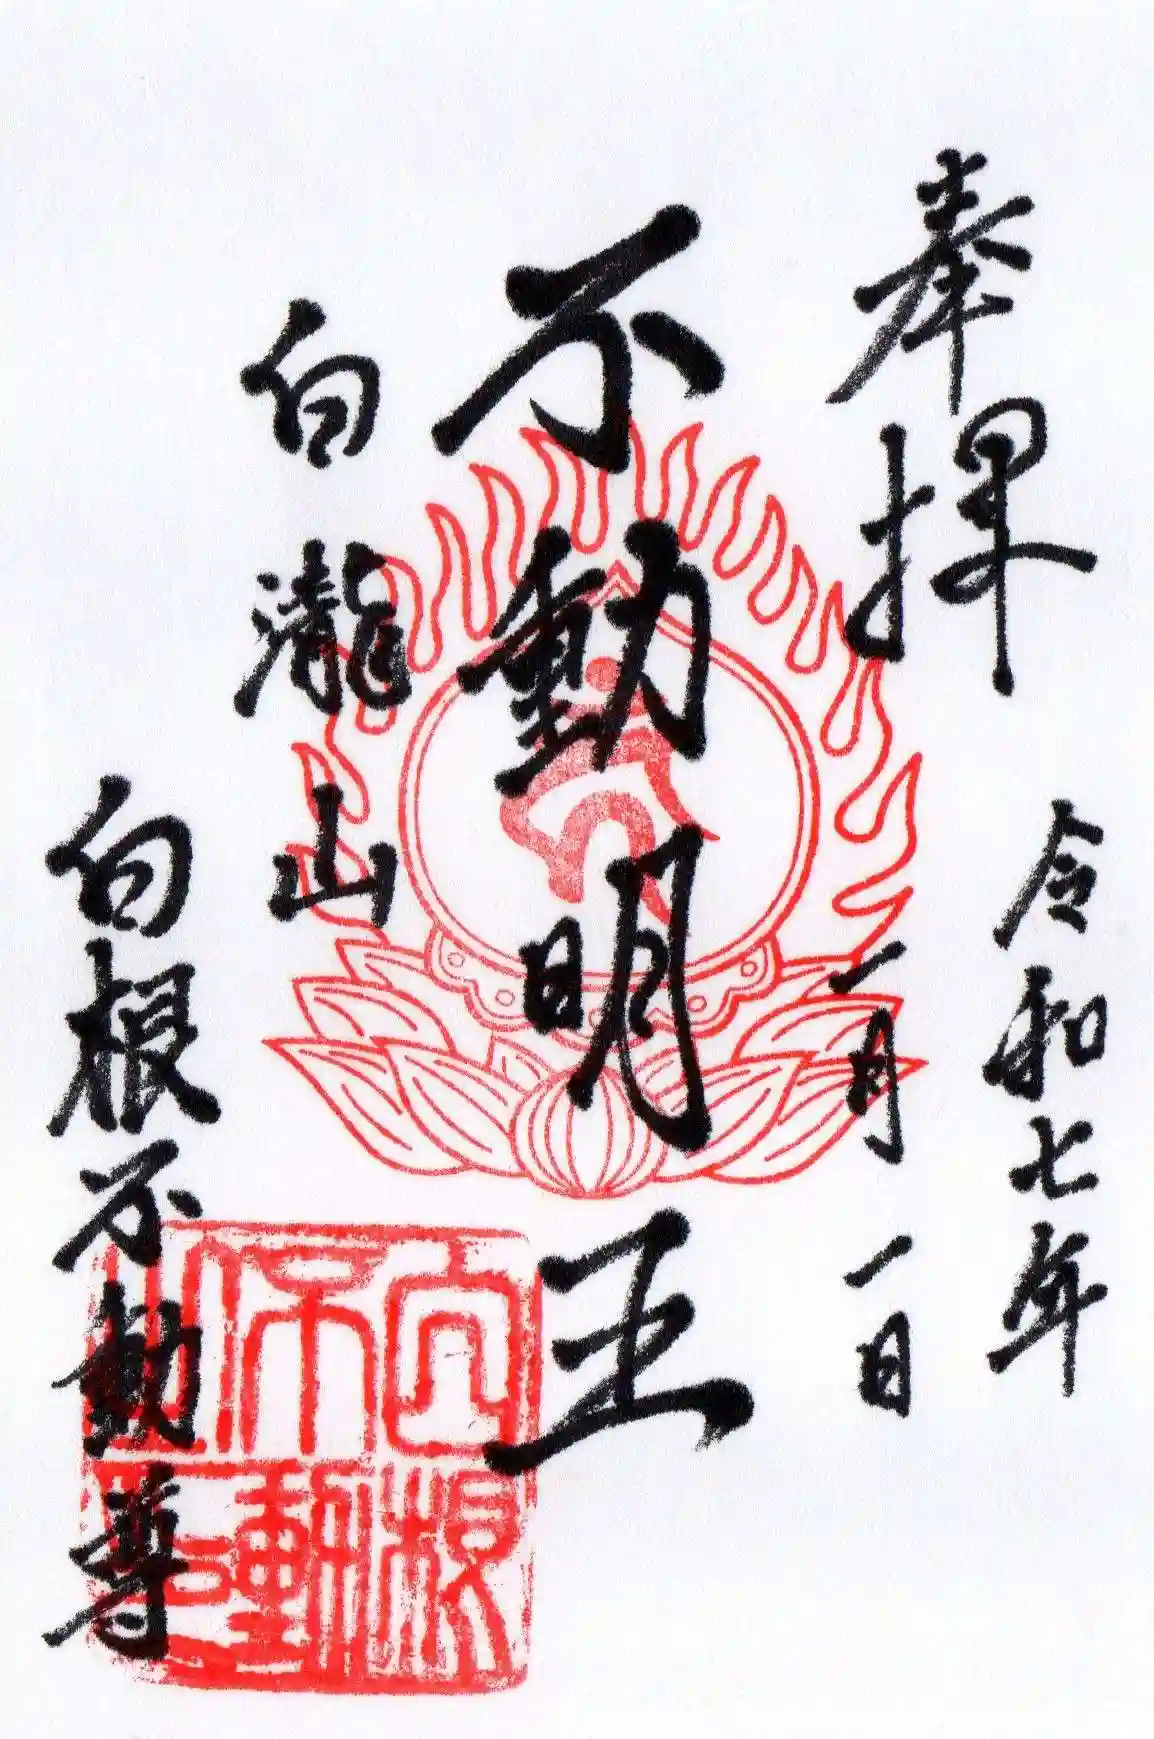 奉拝
令和七年
二月一日
不動明王
白瀧山
白根不動尊
白根
不動